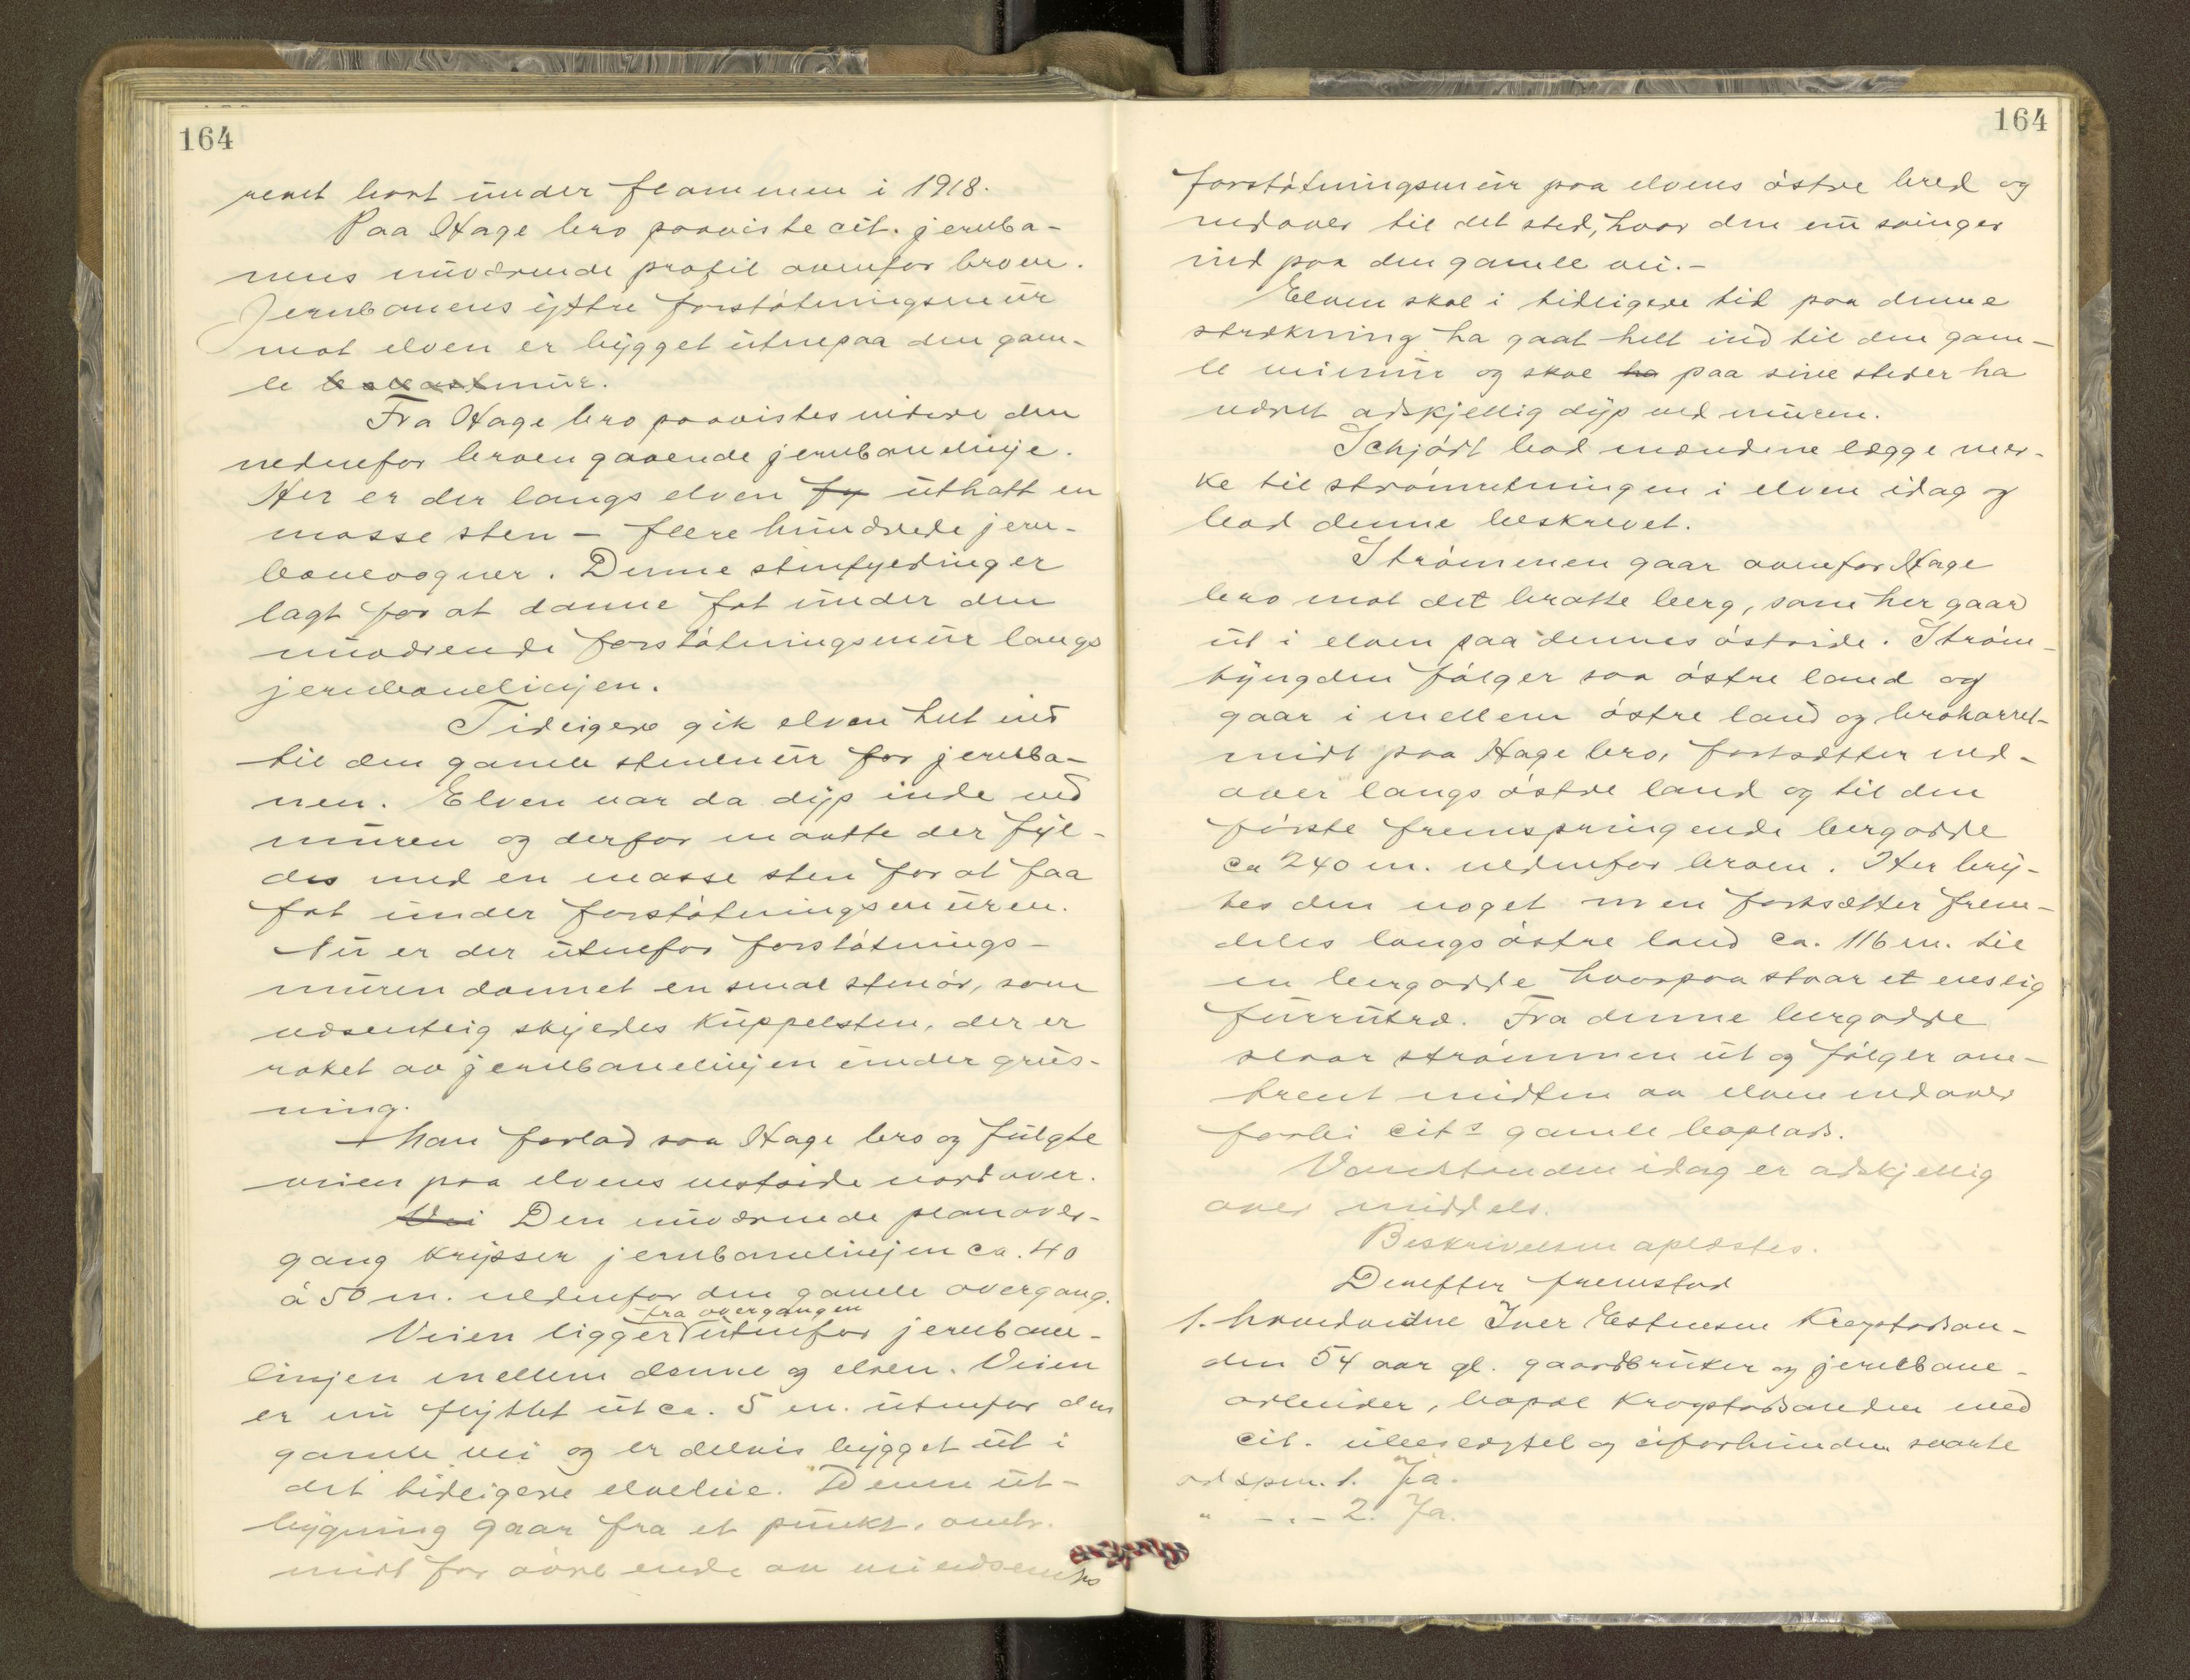 164
revet bort under flommen i 1918.
Paa Hage bro paaviste cit. jernba-
nens nuværende profil ovenfor broen.
Jernbanens ytre forstøtningsmur
mot elven er bygget utenpaa den gam-
le mur.
Fra Hage bro paavistes videre den
nedenfor broen gaaende jernbanelinje.
Her er der langs elven fy uthatt en
masse sten – flere hundrede jern-
banevogner. Denne stenfylding er
lagt for at danne fot under den
nuværende forstøtningsmur langs
jernbanelinjen.
Tidligere gik elven helt ind
til den gamle stenmur for jernba-
nen. Elven var da dyp inde ved
muren og derfor maatte der fyl-
des med en masse sten for at faa
fot under forstøtningsmuren.
Nu er der utenfor forstøtnings-
muren dannet en smal stenør, som
væsentlig skyldes kuppelsten, der er
raket av jernbanelinjen under grus-
ning.
Man forlod saa Hage bro og fulgte
veien paa elvens vestside nordover.
Vei Den nuværende planover-
gang krysser jernbanelinjen ca. 40
à 50 m. nedenfor den gamle overgang.
fra overgangen
Veien ligger utenfor jernbane-
linjen mellem denne og elven. Veien
er nu flyttet ut ca. 5 m. utenfor den
gamle vei og er delvis bygget ut i
det tidligere elveleie. Denne ut-
bygning gaar fra et punkt, omtr.
midt for øvre ende av
164
forstøtningsmur paa elvens østre bred og
nedover til det sted, hvor den nu svinger
ind paa den gamle vei.-
Elven skal i tidligere tid paa denne
strækning ha gaat helt ind til den gam-
le veimur og skal ha paa sine steder ha
været adskjellig dyp ved muren.
Schjødt bad mændene lægge mer-
ke til strømretningen i elven idag og
bad denne beskrevet.
Strømmen gaar ovenfor Hage
bro mot det bratte berg, som her gaar
ut i elven paa dennes østside. Strøm-
tyngden følger saa østre land og
gaar i mellem østre land og brokarret
midt paa Hage bro, fortsætter ned-
over langs østre land og til den
første fremspringende bergodde
ca 240 m. nedenfor broen. Her bry-
tes den noget men fortsætter frem-
deles langs østre land ca. 116 m. til
en bergodde hvorpaa staar et enslig
furrutræ. Fra denne bergodde
slaar strømmen ut og følger om-
trent midten av elven nedover
forbi cits gamle boplads.
Vandstanden idag er adskjellig
over middels.
Beskrivelsen oplæstes.
Derefter fremstod
1. hovedvidne Iver Estensen Krogstadsan-
den 54 aar gl. gaardbruker og jernbane-
arbeider, bopæl Krogstadsanden med
cit. ubeslegtet og uforbunden svarte
ad spm. 1. Ja.
" - . - 2. Ja.